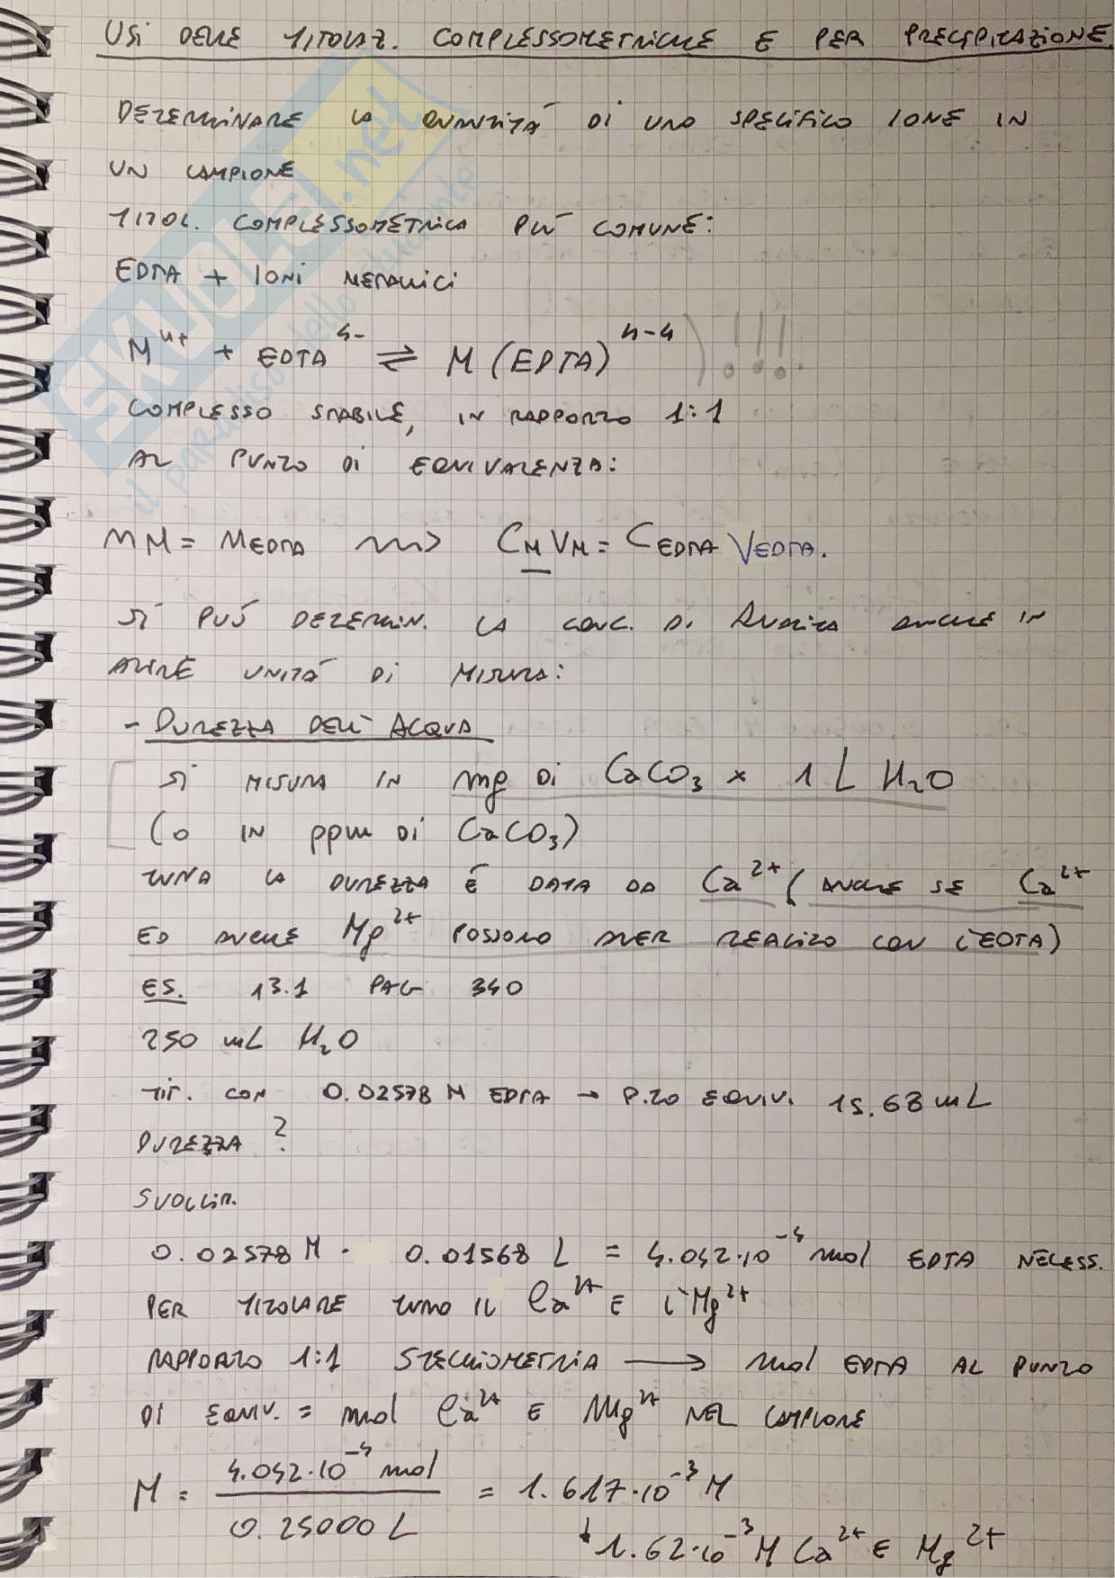 USI DELLE TITOLAZ. COMPLESSOMETRICHE E PER PRECIPITAZIONE.
DETERMINARE LA QUANTITÀ DI UNO SPECIFICO IONE IN
UN CAMPIONE
TITOL. COMPLESSOMETRICA PIÙ COMUNE:
EDTA + IONI METALLICI
Mⁿ⁺ + EDTA⁴⁻ ⇌ M(EDTA)ⁿ⁻⁴ ) !!!
COMPLESSO STABILE, IN RAPPORTO 1:1
AL PUNTO DI EQUIVALENZA:
nM = nEDTA ~~> CM VM = CEDTA VEDTA.
SI PUÒ DETERMIN. LA CONC. DI ANALITA ANCHE IN
ALTRE UNITÀ DI MISURA:
- DUREZZA DELL'ACQUA
SI MISURA IN mg DI CaCO₃ x 1 L H₂O
(O IN ppm DI CaCO₃)
TUTTA LA DUREZZA È DATA DA Ca²⁺ (ANCHE SE Ca²⁺
ED ANCHE Mg²⁺ POSSONO AVER REAGITO CON L'EDTA)
ES. 13.1 PAG 340
250 mL H₂O
TIT. CON 0.02578 M EDTA → P.TO EQUIV. 15.68 mL
DUREZZA?
SVOLGIM.
0.02578 M · 0.01568 L = 4.042·10⁻⁴ mol EDTA NECESS.
PER TITOLARE TUTTO IL Ca²⁺ E L'Mg²⁺
RAPPORTO 1:1 STECHIOMETRIA → mol EDTA AL PUNTO
DI EQUIV. = mol Ca²⁺ E Mg²⁺ NEL CAMPIONE
M = 4.042·10⁻⁴ mol / 0.25000 L = 1.617·10⁻³ M
↓ 1.62·10⁻³ M Ca²⁺ E Mg²⁺
SKUOLA.net
il paradiso dello studente